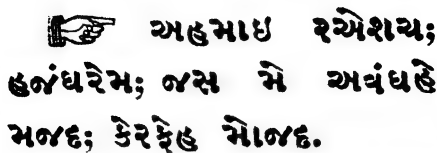 ☞ અહમાઇ રએશચ;
હજંઘરેમ; જસ મે અવંઘહે
મજદ; કેરફેહ મોજદ.